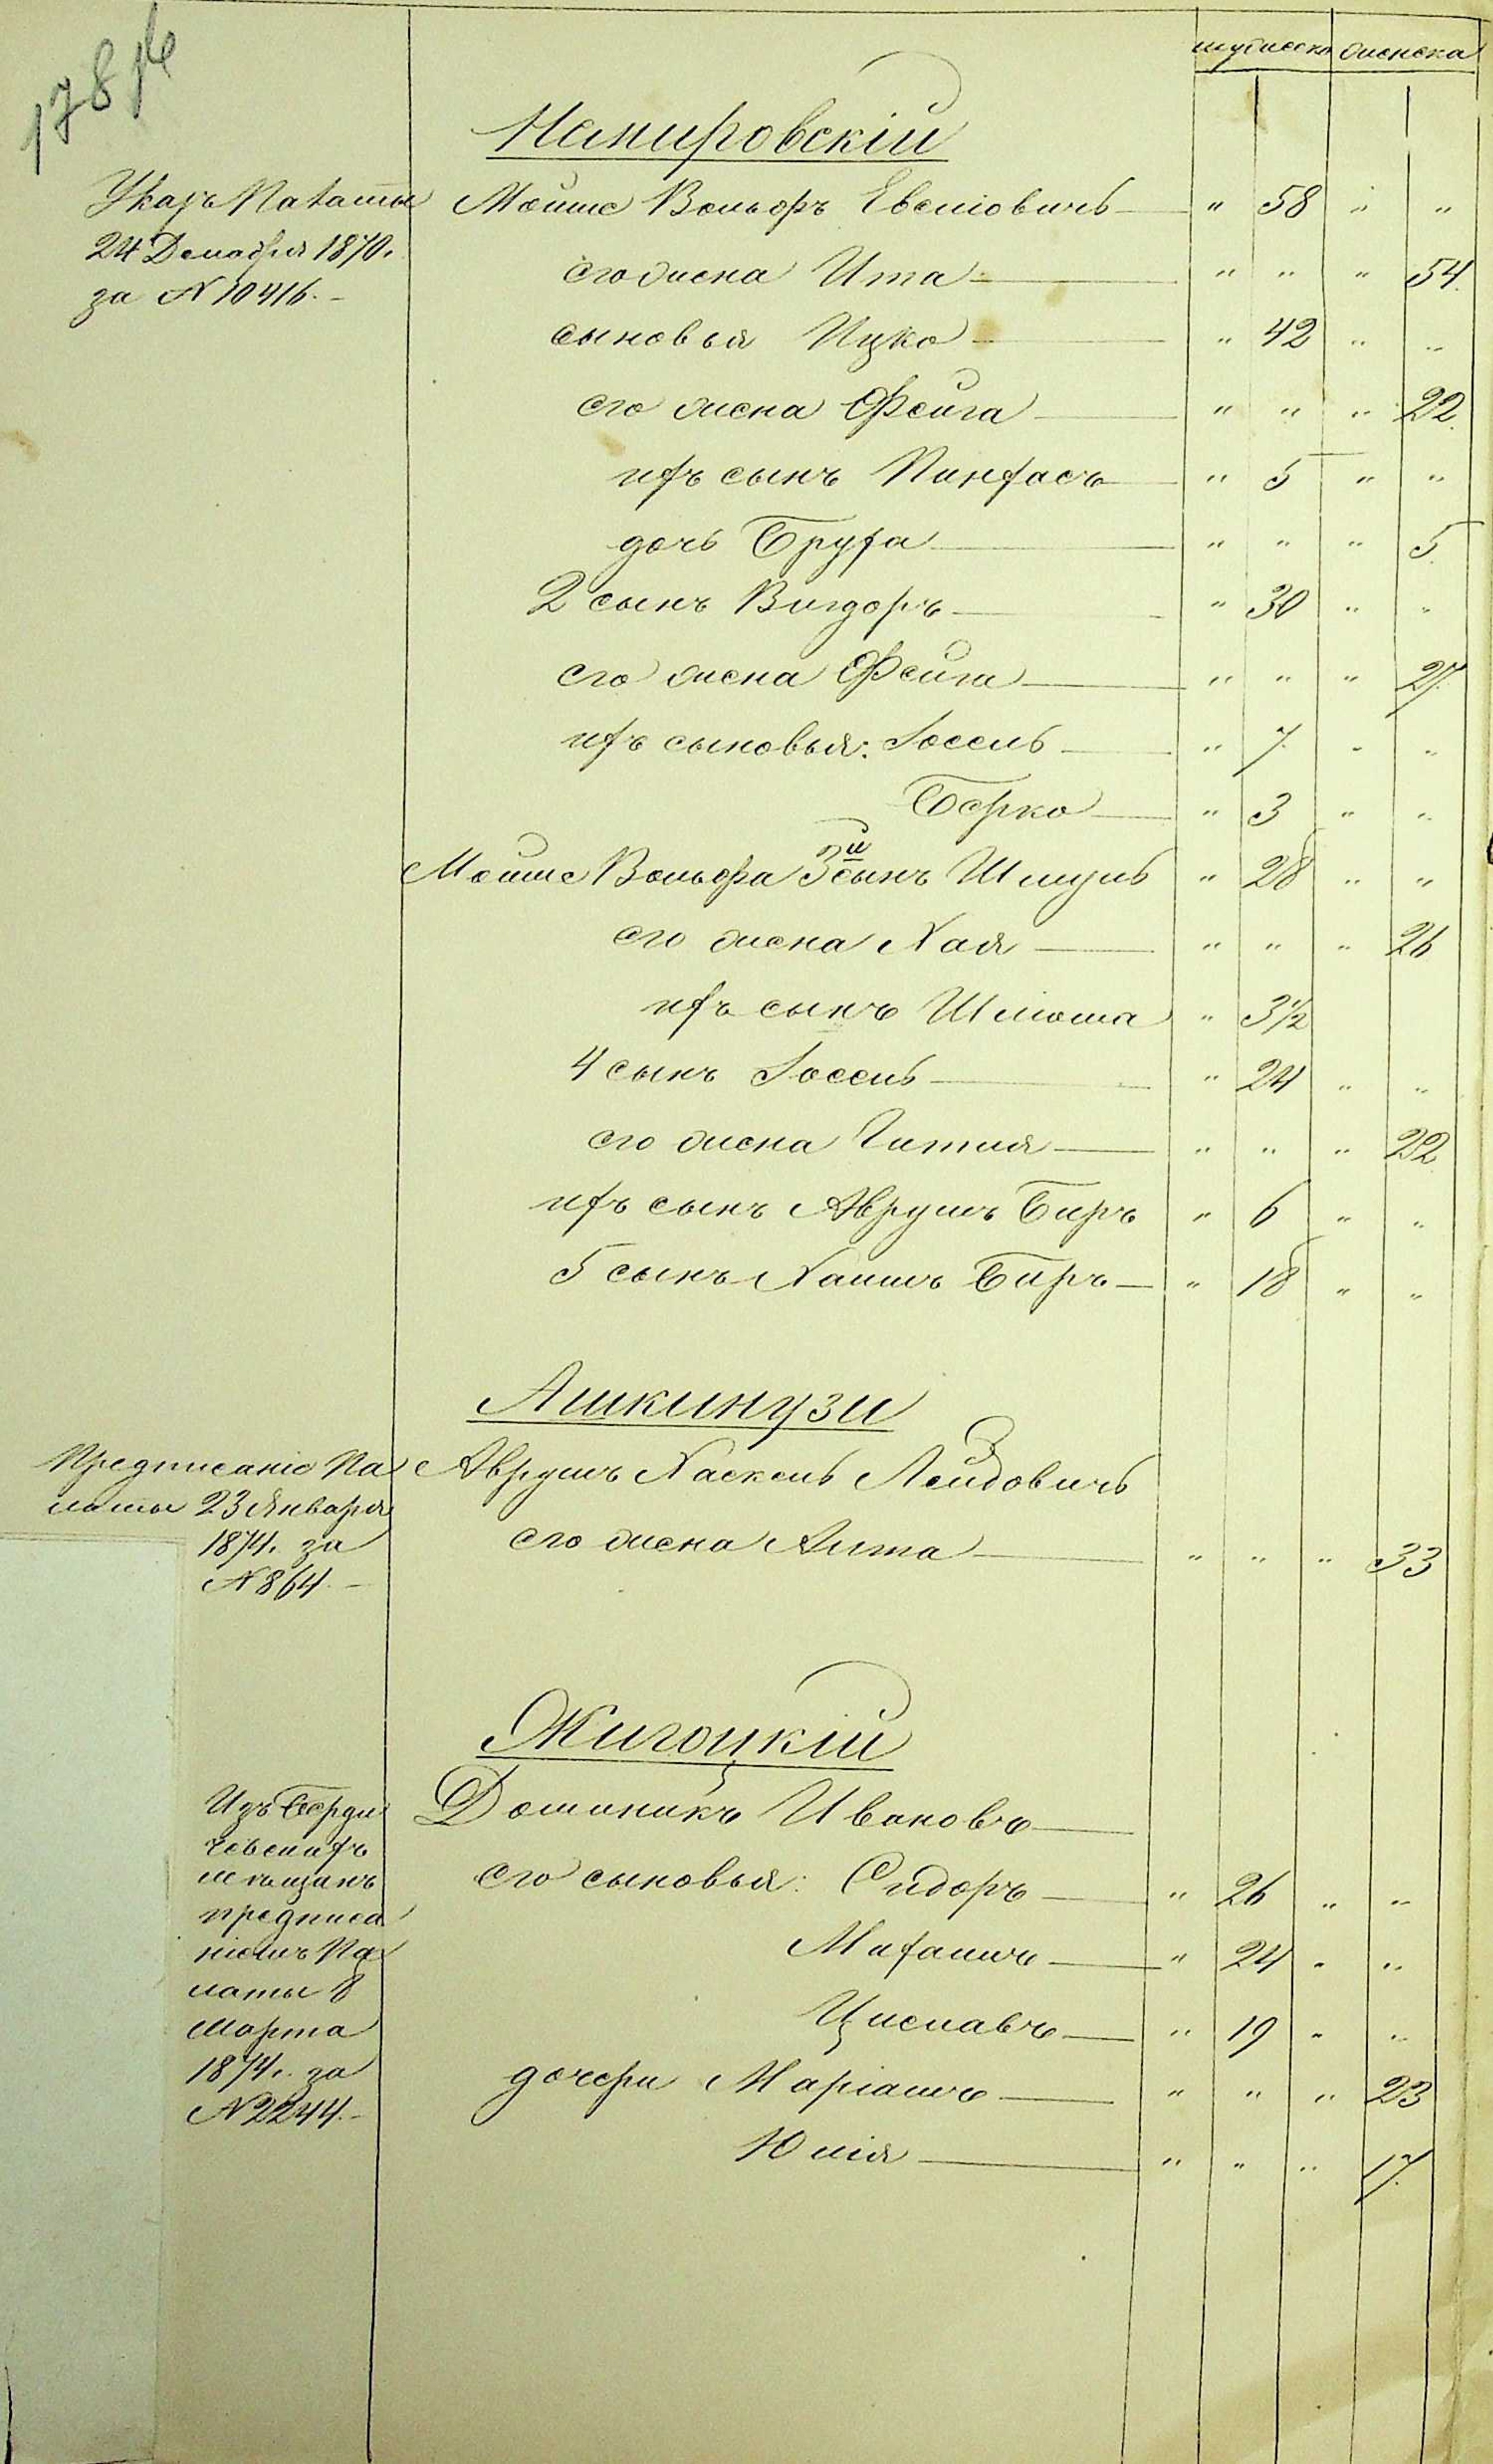 178
мужеска женска
Немировскій
Указъ Палаты
24 Декабря 1870.
за N 10416. –
Мошие Вольфъ Евеліовичъ — " 58 " "
его жена Ита — " " " 54.
сыновья Ицко — " 42 " "
его жена Фейга — " " " 22.
ихъ сынъ Пинхасъ — " 5 " "
дочь Бруха — " " " 5.
2 сынъ Вигдоръ — " 30 " "
его жена Фейга — " " " 27.
ихъ сыновья: Іосель — " 7. " "
Берко — " 3 " "
Мошие Вольфа 3й сынъ Шмуль " 28 " "
его жена Хая — " " " 26
ихъ сынъ Шліома " 3½
4 сынъ Іосель — " 24 " "
его жена Гитля — " " " 22
ихъ сынъ Аврумъ Беръ " 6 " "
5 сынъ Хаимъ Беръ — " 18 " "
Ашкинузи
Предписаніе Па
латы 23 Января
1874. за
N 864. –
Аврумъ Хаскель Лейбовичъ
его жена Алта — " " " 33
Жигоцкій
Изъ Берди
чевскихъ
мѣщанъ
предписа
ніемъ Па
латы 8
Марта
1874. за
N 2244. –
Доминикъ Ивановъ —
его сыновья: Сидоръ — " 26 " "
Михаилъ — " 24 " "
Циславъ — " 19 " "
дочери Маріамъ — " " " 23
Юлія — " " " 17.